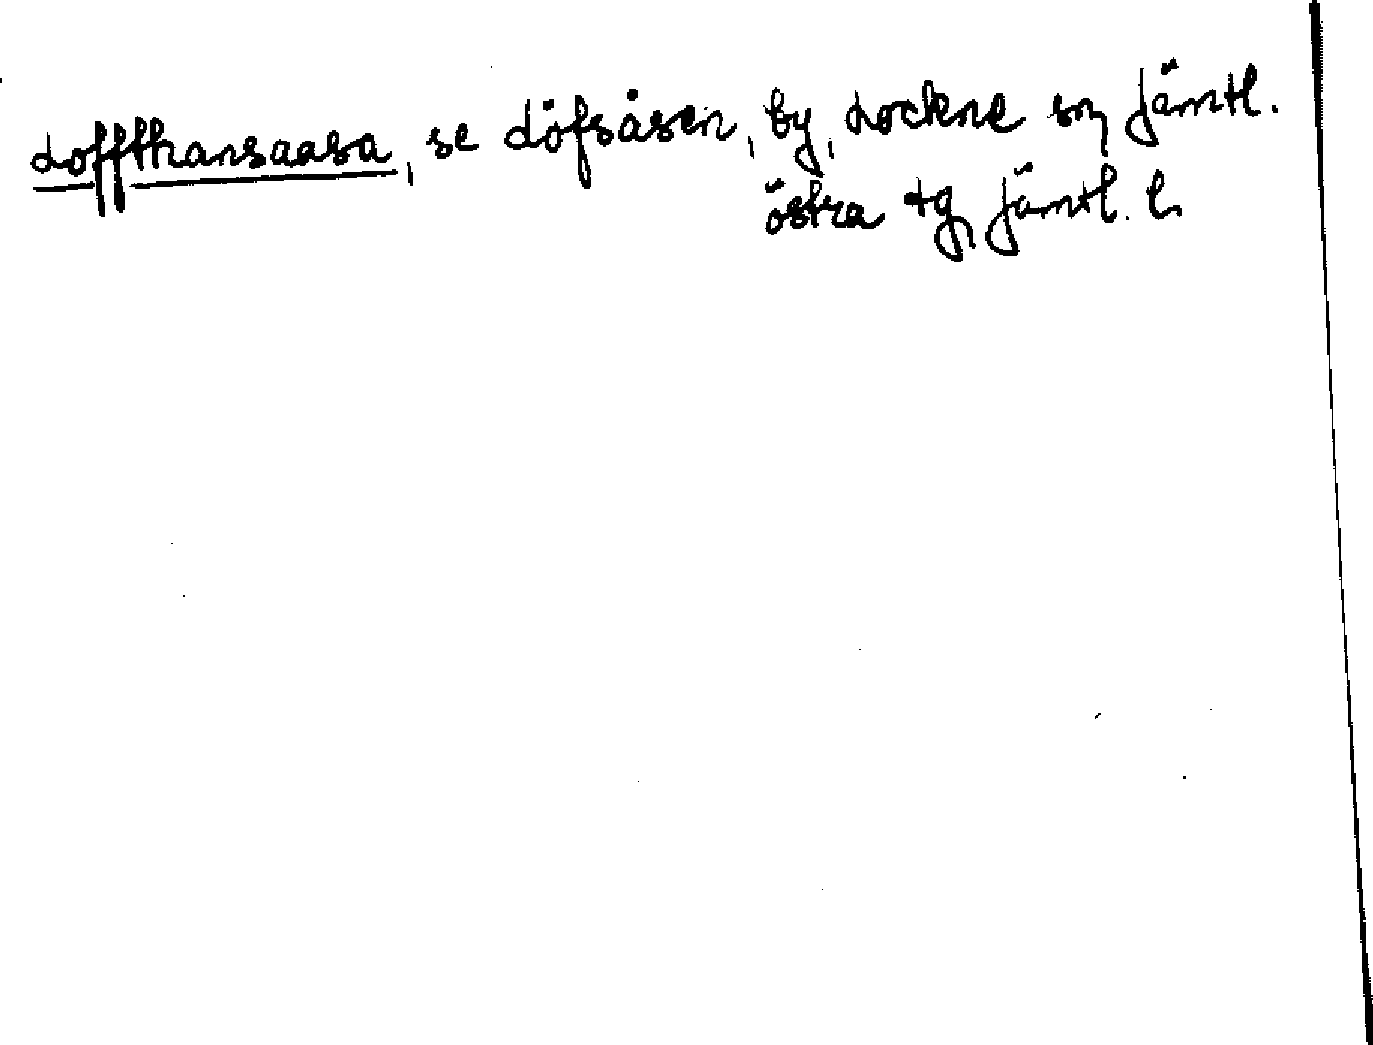 doffthansaasa, se döfsåsen, by, Lockne sn, Jämtl.
östra tg, Jämtl. l.